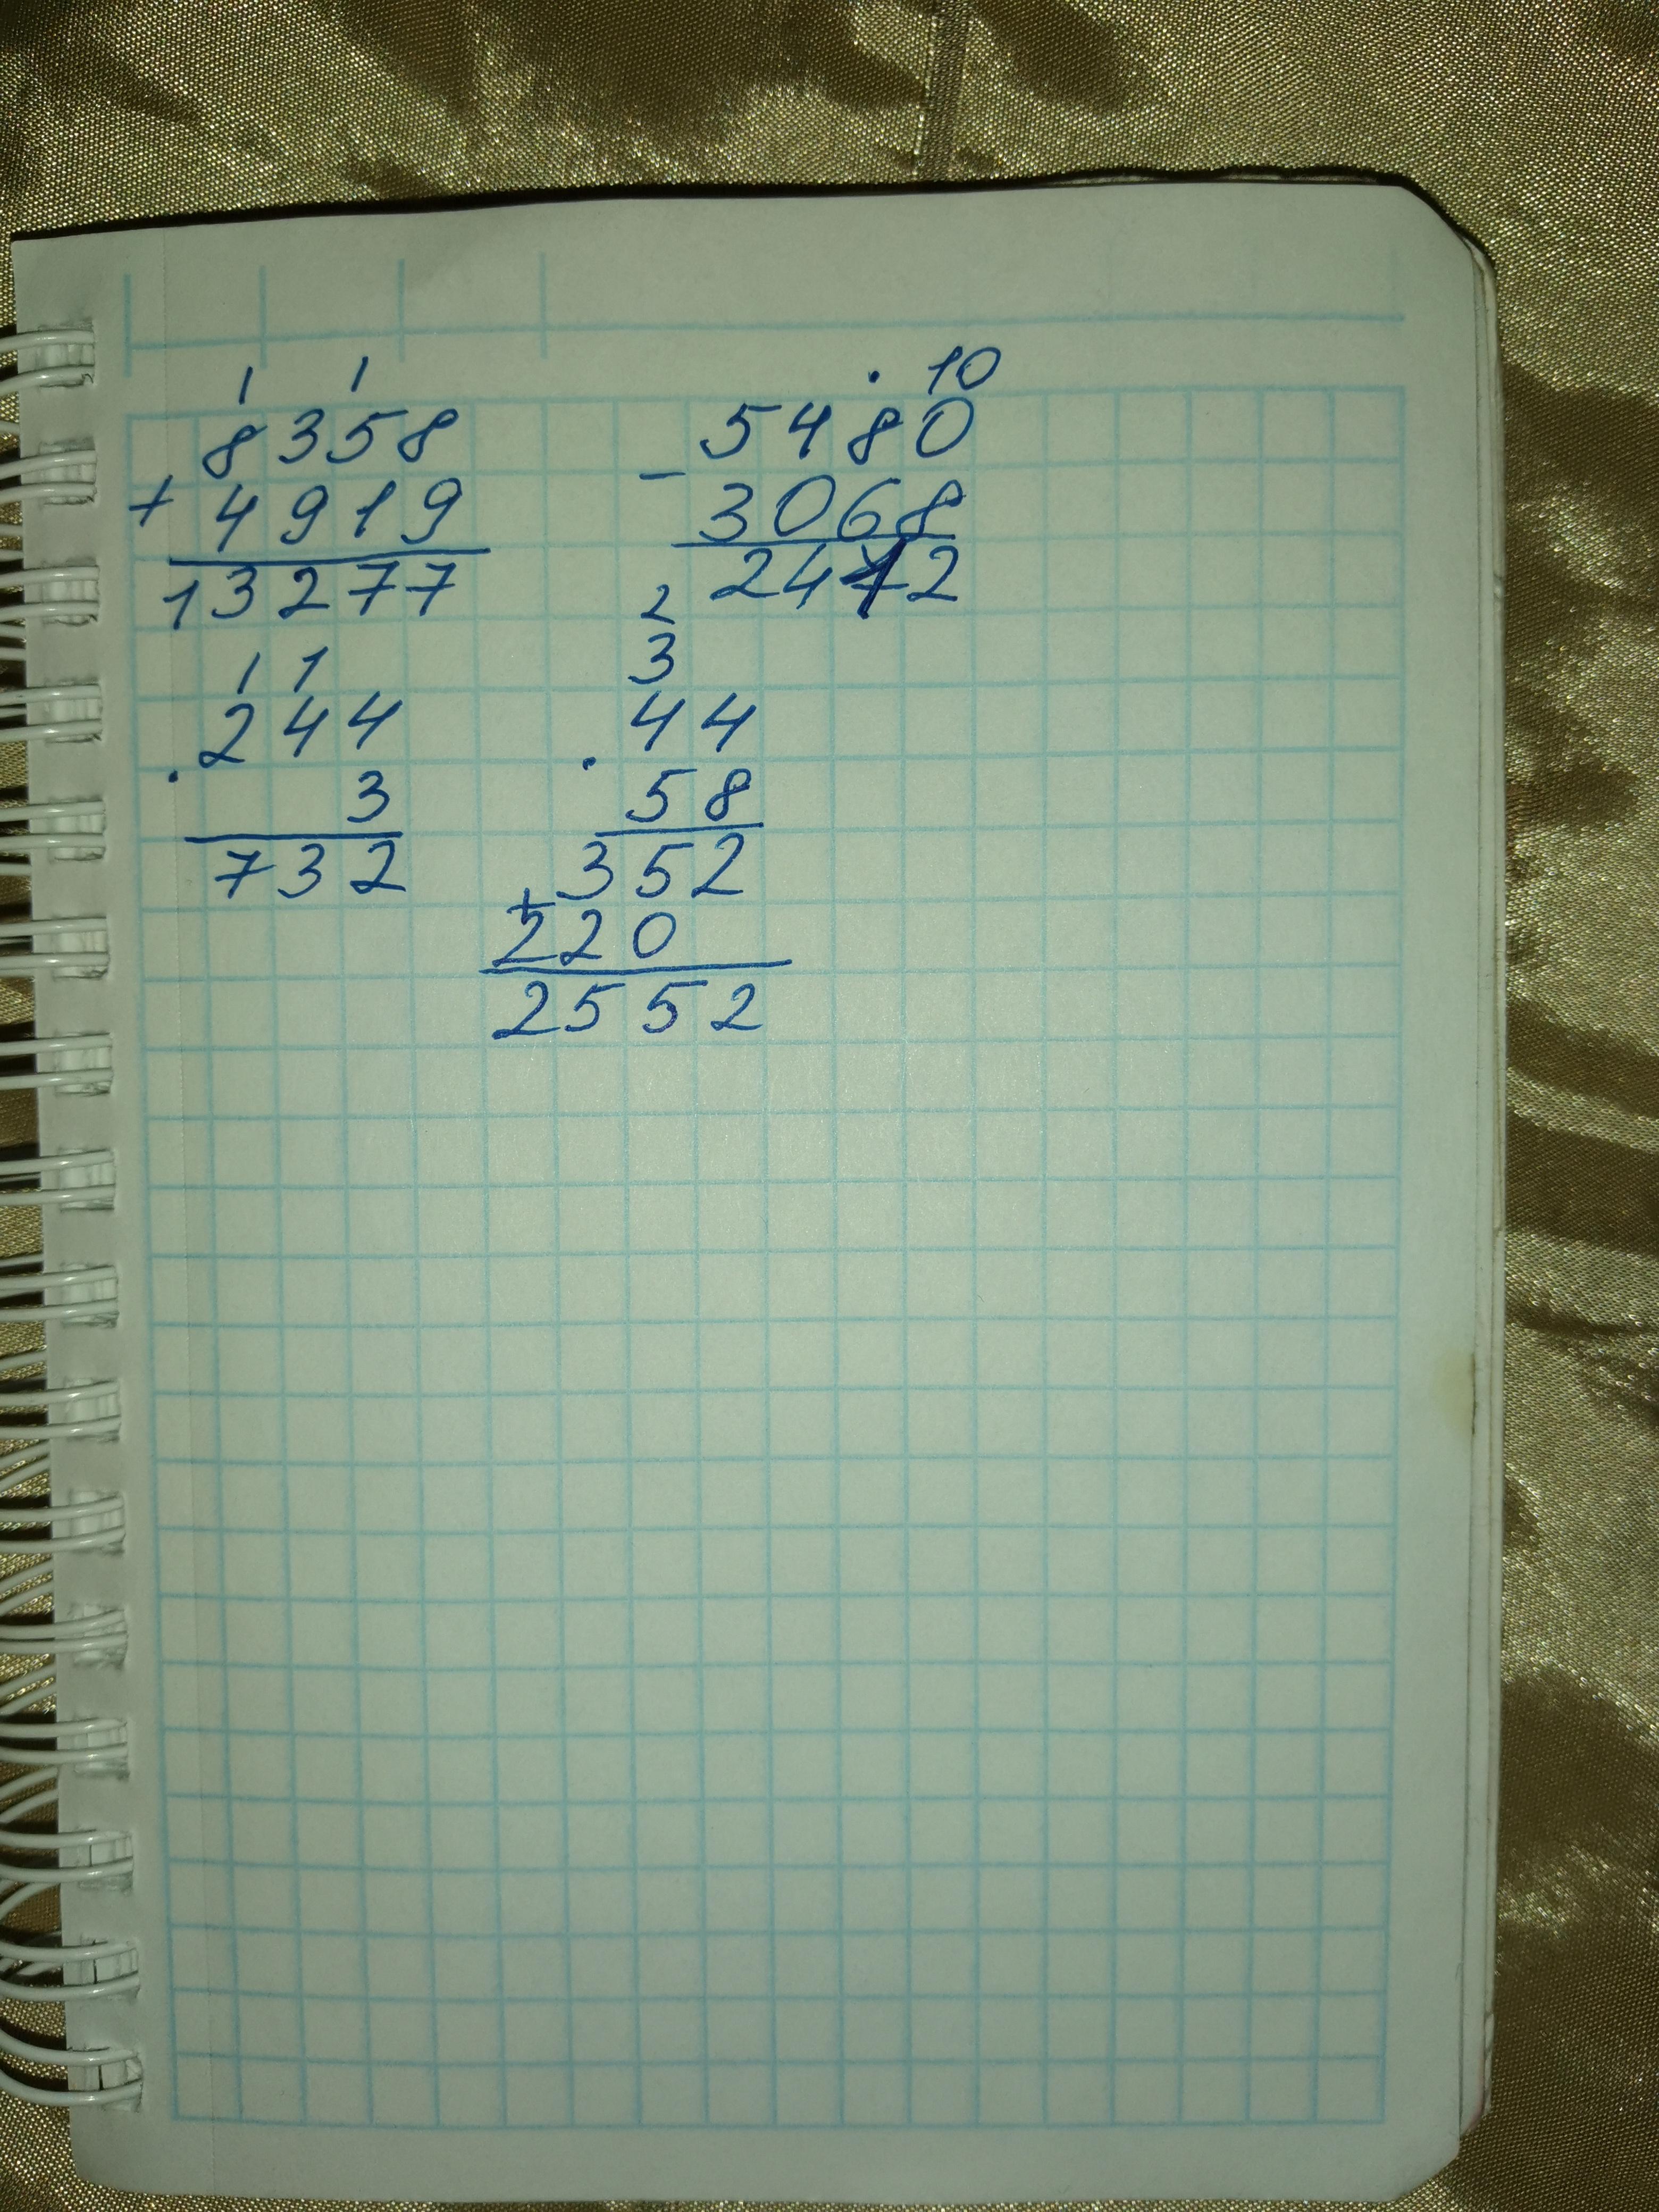 1 1
8358
+
4919
13277
. 10
5480
-
3068
2412
1 1
244
.
3
732
2
3
44
.
58
352
+
220
2552